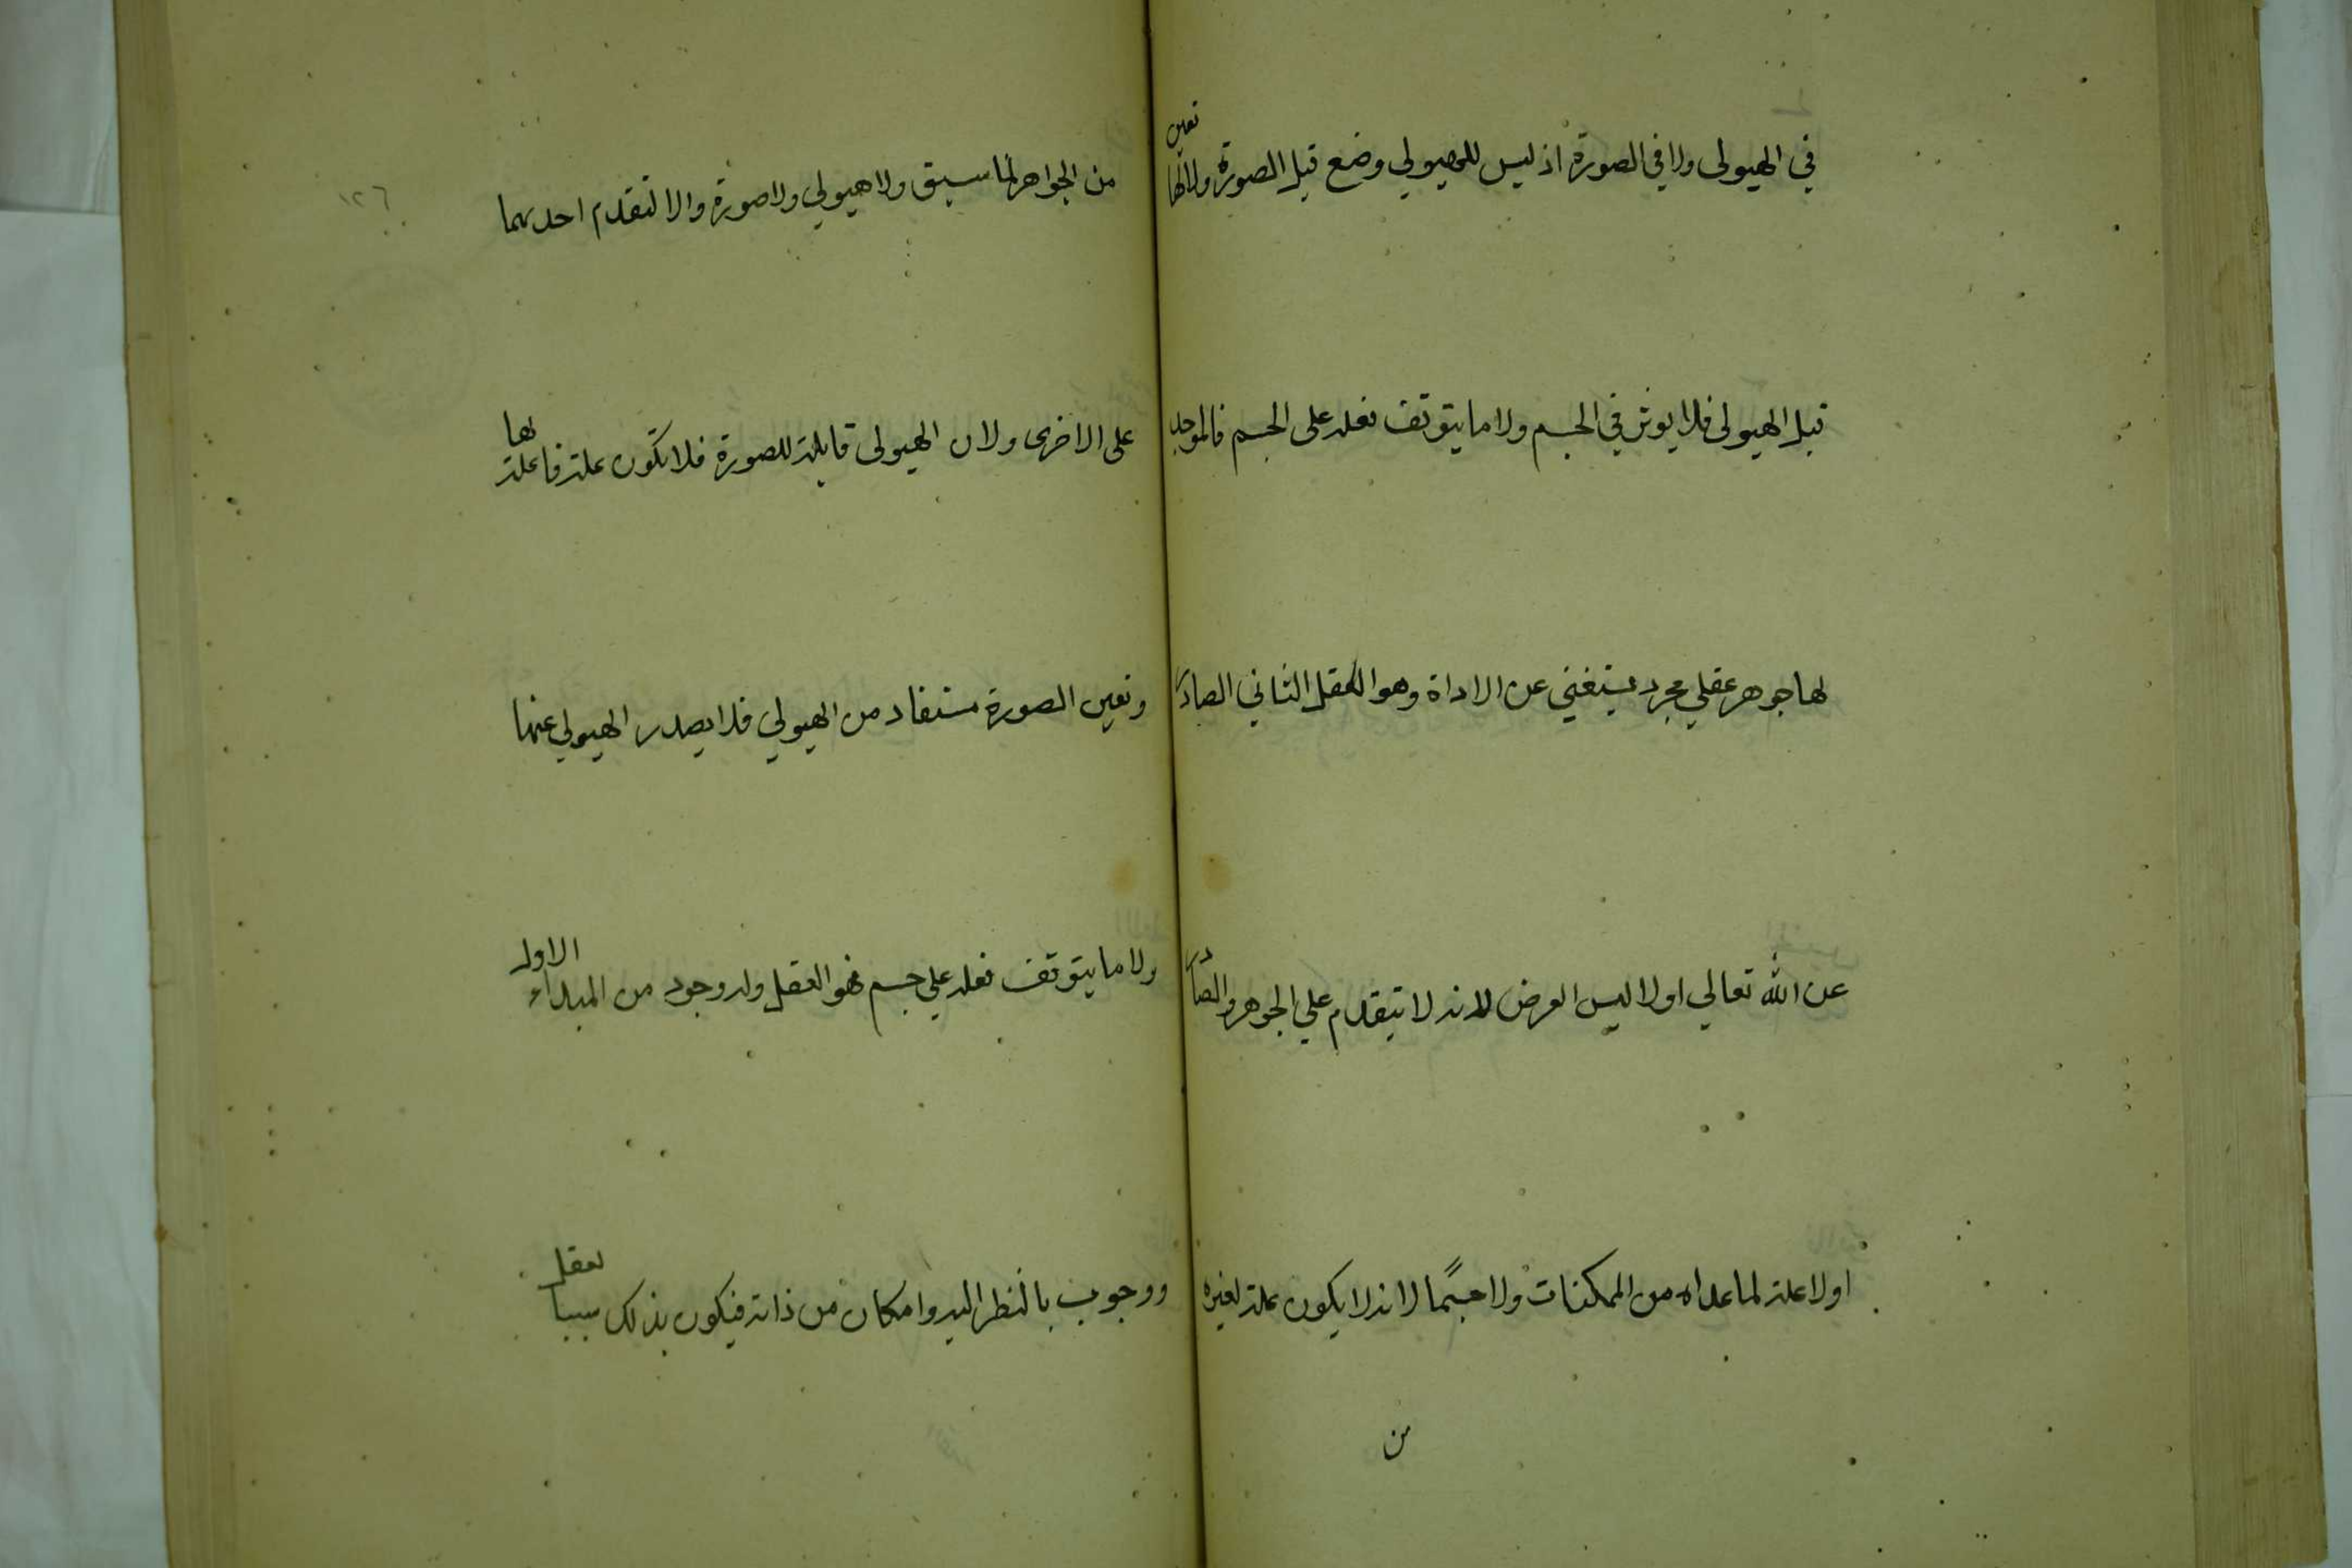 في الهيولى ولا في الصورة اذ ليس للهيولي وضع قبل الصورة ولا لها تعين
قبل الهيولى فلا يوثر في الجسم ولا ما يتوقف فعله على الجسم فالموجد
لها جوهر عقلي مجرد يستغني عن الاداة وهو العقل الثاني الصادر
عن الله تعالي اولا ليس العرض لانه لا يتقدم علي الجوهر والصادر
اولا علة لما عداه من الممكنات ولا جسمًا لانه لا يكون علة لغيره
من
١٢٦
من الجواهر لما سبق ولا هيولي ولا صورة والا لتقدم احدیهما
على الاخرى ولان الهيولى قابلة للصورة فلا تكون علة فاعلة لها
وتعين الصورة مستفاد من الهيولي فلا يصدر الهيولي عنها
ولا ما يتوقف فعله علي جسم فهو العقل وله وجود من المبداء الاول
ووجوب بالنظر اليه وامكان من ذاته فيكون بذلك سببا لعقل